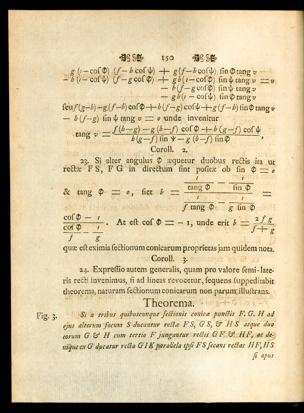 150
g (1 - cos Φ) (f - b cos ψ) + g (f - b cos ψ) sin Φ tang v
- b (1 - cos ψ) (f - g cos Φ) + g b (1 - cos Φ) sin ψ tang v = 0
- b (f - g cos Φ) sin ψ tang v
- g b (1 - cos ψ) sin Φ tang v
seu f (g-b) - g (f-b) cos Φ + b (f-g) cos ψ + g (f-b) sin Φ tang v
- b (f-g) sin ψ tang v = 0 unde invenitur
tang v = f (b-g) - g (b-f) cos Φ + b (g-f) cos ψ
b (g-f) sin ψ - g (b-f) sin Φ
Coroll. 2.
23. Si alter angulus Φ æquetur duobus rectis ita ut
rectæ F S, F G in directum sint positæ ob sin Φ = 0
& tang Φ = 0, fiet b = 1/tang Φ - 1/sin Φ
1/f tang Φ - 1/g sin Φ
cos Φ - 1
cos Φ/f - 1/g . At est cos Φ = - 1, unde erit b = 2 f g/f + g
quæ est eximia sectionum conicarum proprietas jam quidem nota.
Coroll. 3.
24. Expressio autem generalis, quam pro valore semi-late-
ris recti invenimus, si ad lineas revocetur, sequens suppeditabit
theorema, naturam sectionum conicarum non parum illustrans.
Theorema.
Fig. 3. Si a tribus quibuscunque sectionis conicæ punctis F. G. H ad
ejus alterum focum S ducantur rectæ FS, GS, & HS atque duo
eorum G & H cum tertio F jungantur rectis GF & HF, ac de-
nique ex G ducatur recta GIK parallela ipsi FS secans rectas HF, HS
si opus